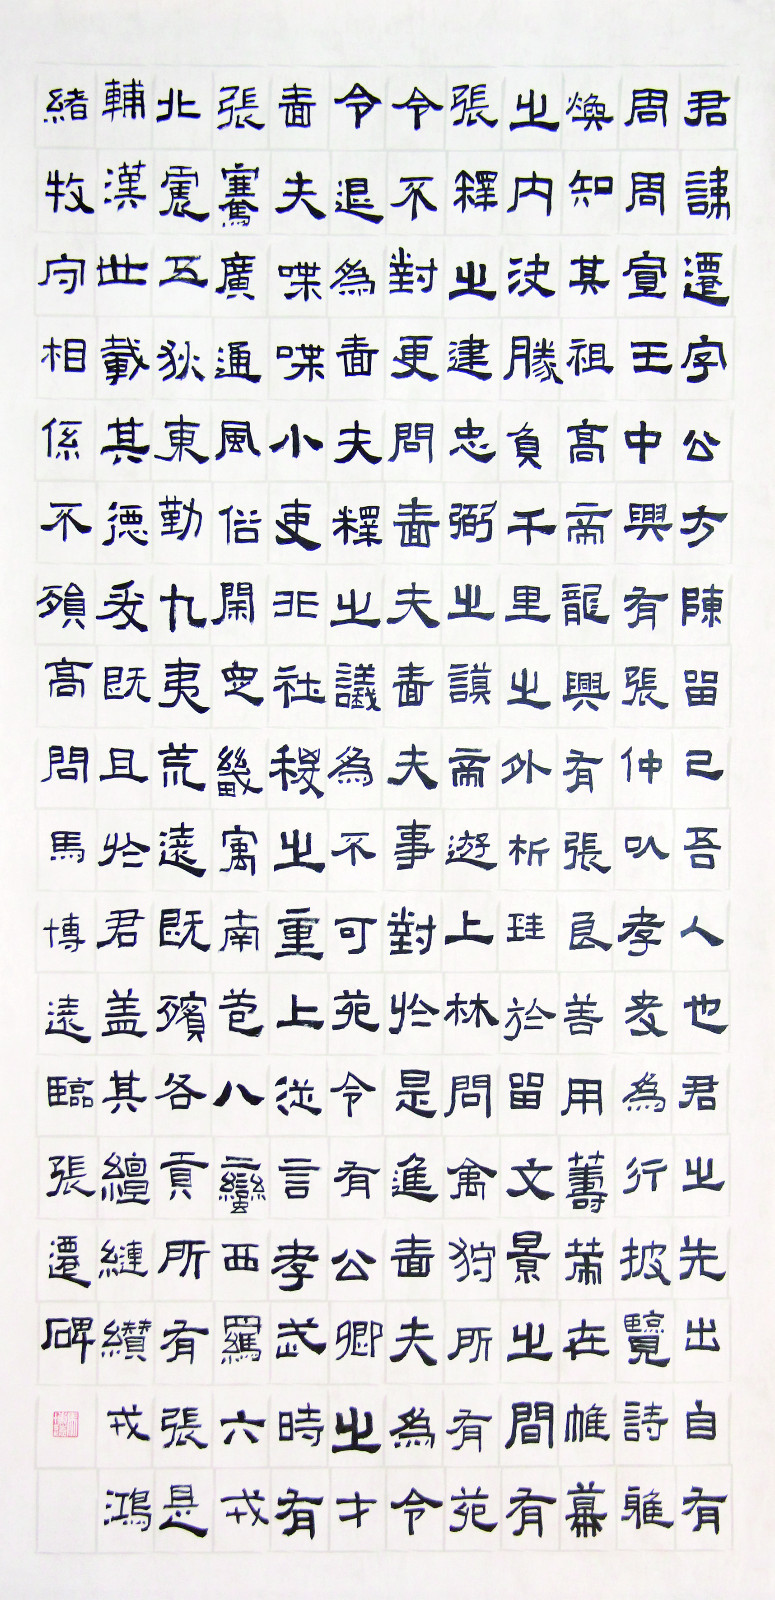 君諱遷字公方陳留己吾人也君之先出自有
周周宣王中興有張仲以孝友為行披覽詩雅
煥知其祖高帝龍興有張良善用籌策在帷幕
之內決勝負千里之外析珪於留文景之間有
張釋之建忠弼之謨帝遊上林問禽狩所有苑
令不對更問嗇夫嗇夫事對於是進嗇夫為令
令退為嗇夫釋之議為不可苑令有公卿之才
嗇夫喋喋小吏非社稷之重上從言孝武時有
張騫廣通風俗開定畿寓南苞八蠻西羈六戎
北震五狄東勤九夷荒遠既殯各貢所有張是
輔漢世載其德爰既且於君蓋其繵縺纘戎鴻
緒牧守相係不殞高問馬博遠臨張遷碑